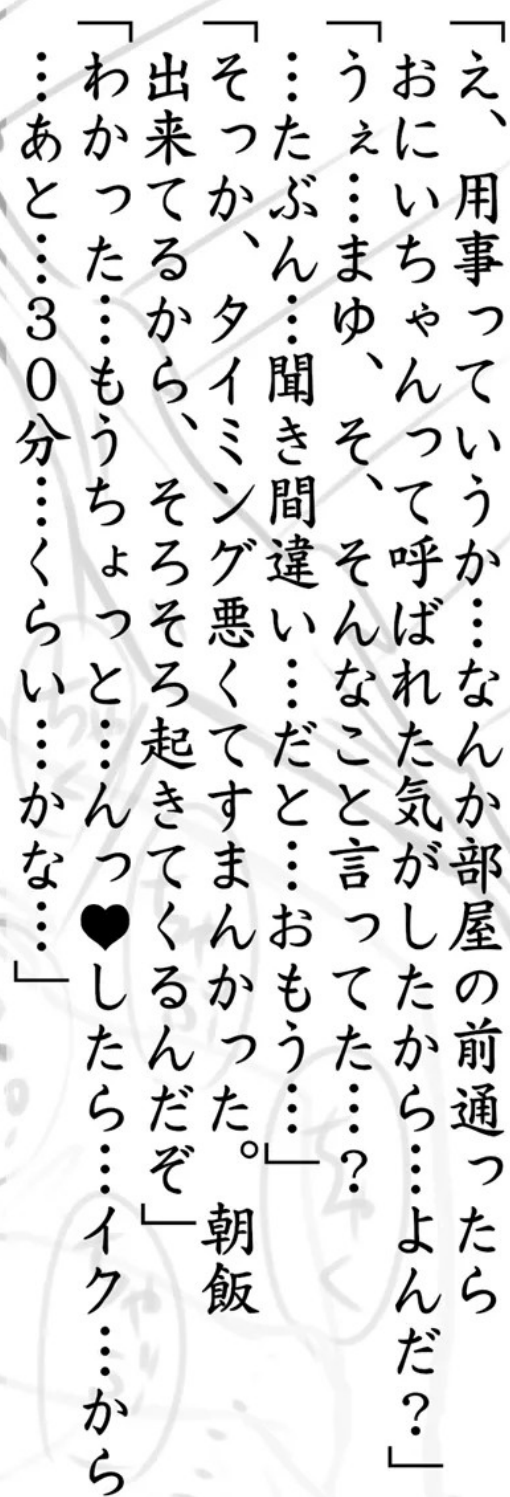 「え、用事っていうか…なんか部屋の前通ったら
おにいちゃんって呼ばれた気がしたから…よんだ？」
「うぇ…まゆ、そ、そんなこと言ってた…？
…たぶん…聞き間違い…だと…おもう…」
「そっか、タイミング悪くてすまんかった。朝飯
出来てるから、そろそろ起きてくるんだぞ」
「わかった…もうちょっと…んっ♥したら…イク…から
…あと…３０分…くらい…かな…」